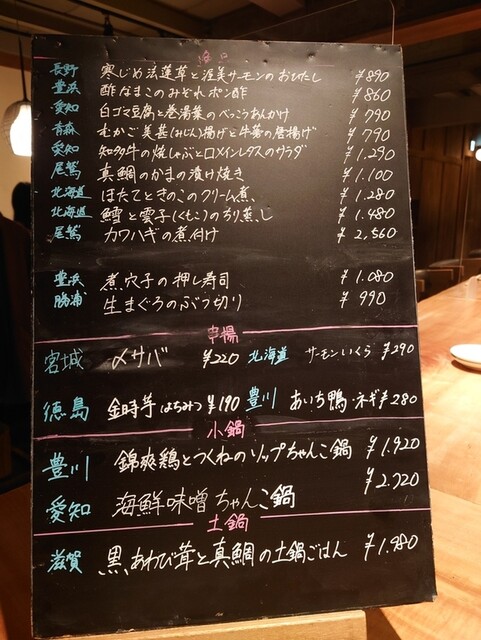 長野 寒じめ法蓮草と渥美サーモンのおひたし ¥890
豊浜 酢なまこのみぞれポン酢 ¥860
愛知 白ゴマ豆腐と巻湯葉のべっこうあんかけ ¥790
青森 むかご美甚(みじん)揚げと牛蒡の唐揚げ ¥790
愛知 知多牛の焼しゃぶとロメインレタスのサラダ ¥1,290
尾鷲 真鯛のかまの漬け焼き ¥1,100
北海道 ほたてときのこのクリーム煮 ¥1,280
北海道 鱈と雲子(くもこ)のちり蒸し ¥1,480
尾鷲 カワハギの煮付け ¥2,560
豊浜 煮穴子の押し寿司 ¥1,080
勝浦 生まぐろのぶつ切り ¥990
串揚
宮城 〆サバ ¥220 北海道 サーモンいくら ¥290
徳島 金時芋はちみつ ¥190 豊川 あいち鴨・ネギ ¥280
小鍋
豊川 錦爽鶏とつくねのソップちゃんこ鍋 ¥1,920
愛知 海鮮味噌ちゃんこ鍋 ¥2,720
土鍋
滋賀 黒あわび茸と真鯛の土鍋ごはん ¥1,980